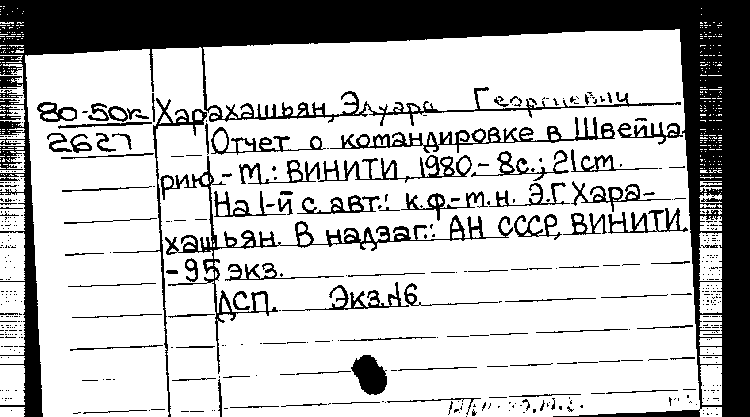 80-50к Харахашьян, Эдуард Георгиевич
2627 Отчет о командировке в Швейца-
рию.- М.: ВИНИТИ, 1980.- 8с.; 21см.
На 1-й с. авт.: к.ф.-м.н. Э.Г. Хара-
хашьян. В надзаг.: АН СССР, ВИНИТИ.
-95 экз.
ДСП. Экз.№6